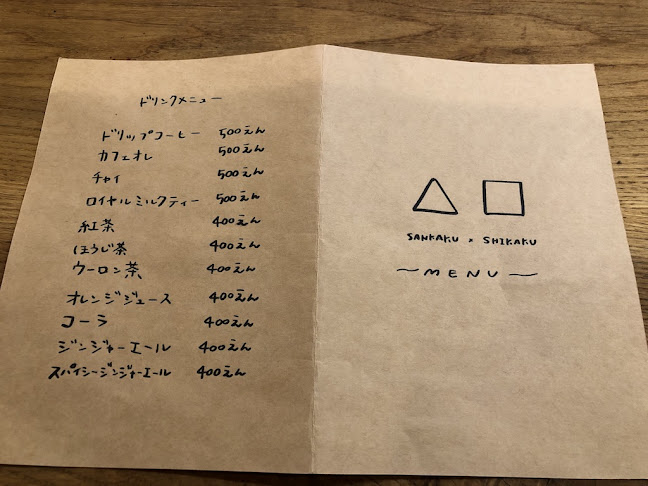 ドリンクメニュー
ドリップコーヒー 500えん
カフェオレ 500えん
チャイ 500えん
ロイヤルミルクティー 500えん
紅茶 400えん
ほうじ茶 400えん
ウーロン茶 400えん
オレンジジュース 400えん
コーラ 400えん
ジンジャーエール 400えん
スパイシージンジャーエール 400えん
△ □
SANKAKU × SHIKAKU
〜MENU〜